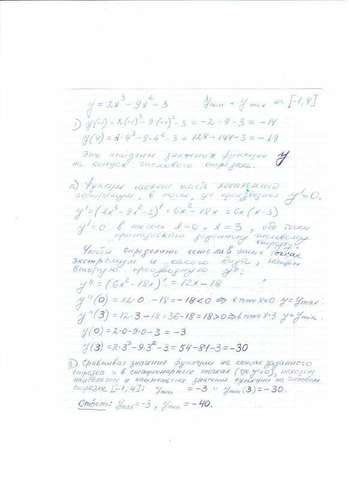 y = 2x³ - 9x² - 3 yнаиб и yнаим на [-1,4]
1) y(-1) = 2·(-1)³ - 9·(-1)² - 3 = -2 - 9 - 3 = -14
y(4) = 2·4³ - 9·4² - 3 = 128 - 144 - 3 = -19
Это найдены значения функции y
на концах числового отрезка.
2) Функция может иметь
экстремумы в точках, где производная y' = 0.
y' = (2x³ - 9x² - 3)' = 6x² - 18x = 6x(x - 3)
y' = 0 в точках x = 0 и x = 3, обе точки
принадлежат данному числовому
отрезку.
Чтобы определить есть ли в этих точках
экстремум и какого вида, найдём
вторую производную y'':
y'' = (6x² - 18x)' = 12x - 18
y''(0) = 12·0 - 18 = -18 < 0 ⇒ в т. x=0 y = ymax
y''(3) = 12·3 - 18 = 36 - 18 = 18 > 0 ⇒ в т. x=3 y = ymin
y(0) = 2·0 - 9·0 - 3 = -3
y(3) = 2·3³ - 9·3² - 3 = 54 - 81 - 3 = -30
3) Сравнивая значения функции на концах заданного
отрезка и в стационарных точках (где y'=0), находим
наибольшее и наименьшее значения функции на числовом
отрезке [-1;4]: = -3 и (3) = -30.
Ответ: = -3, = -40.